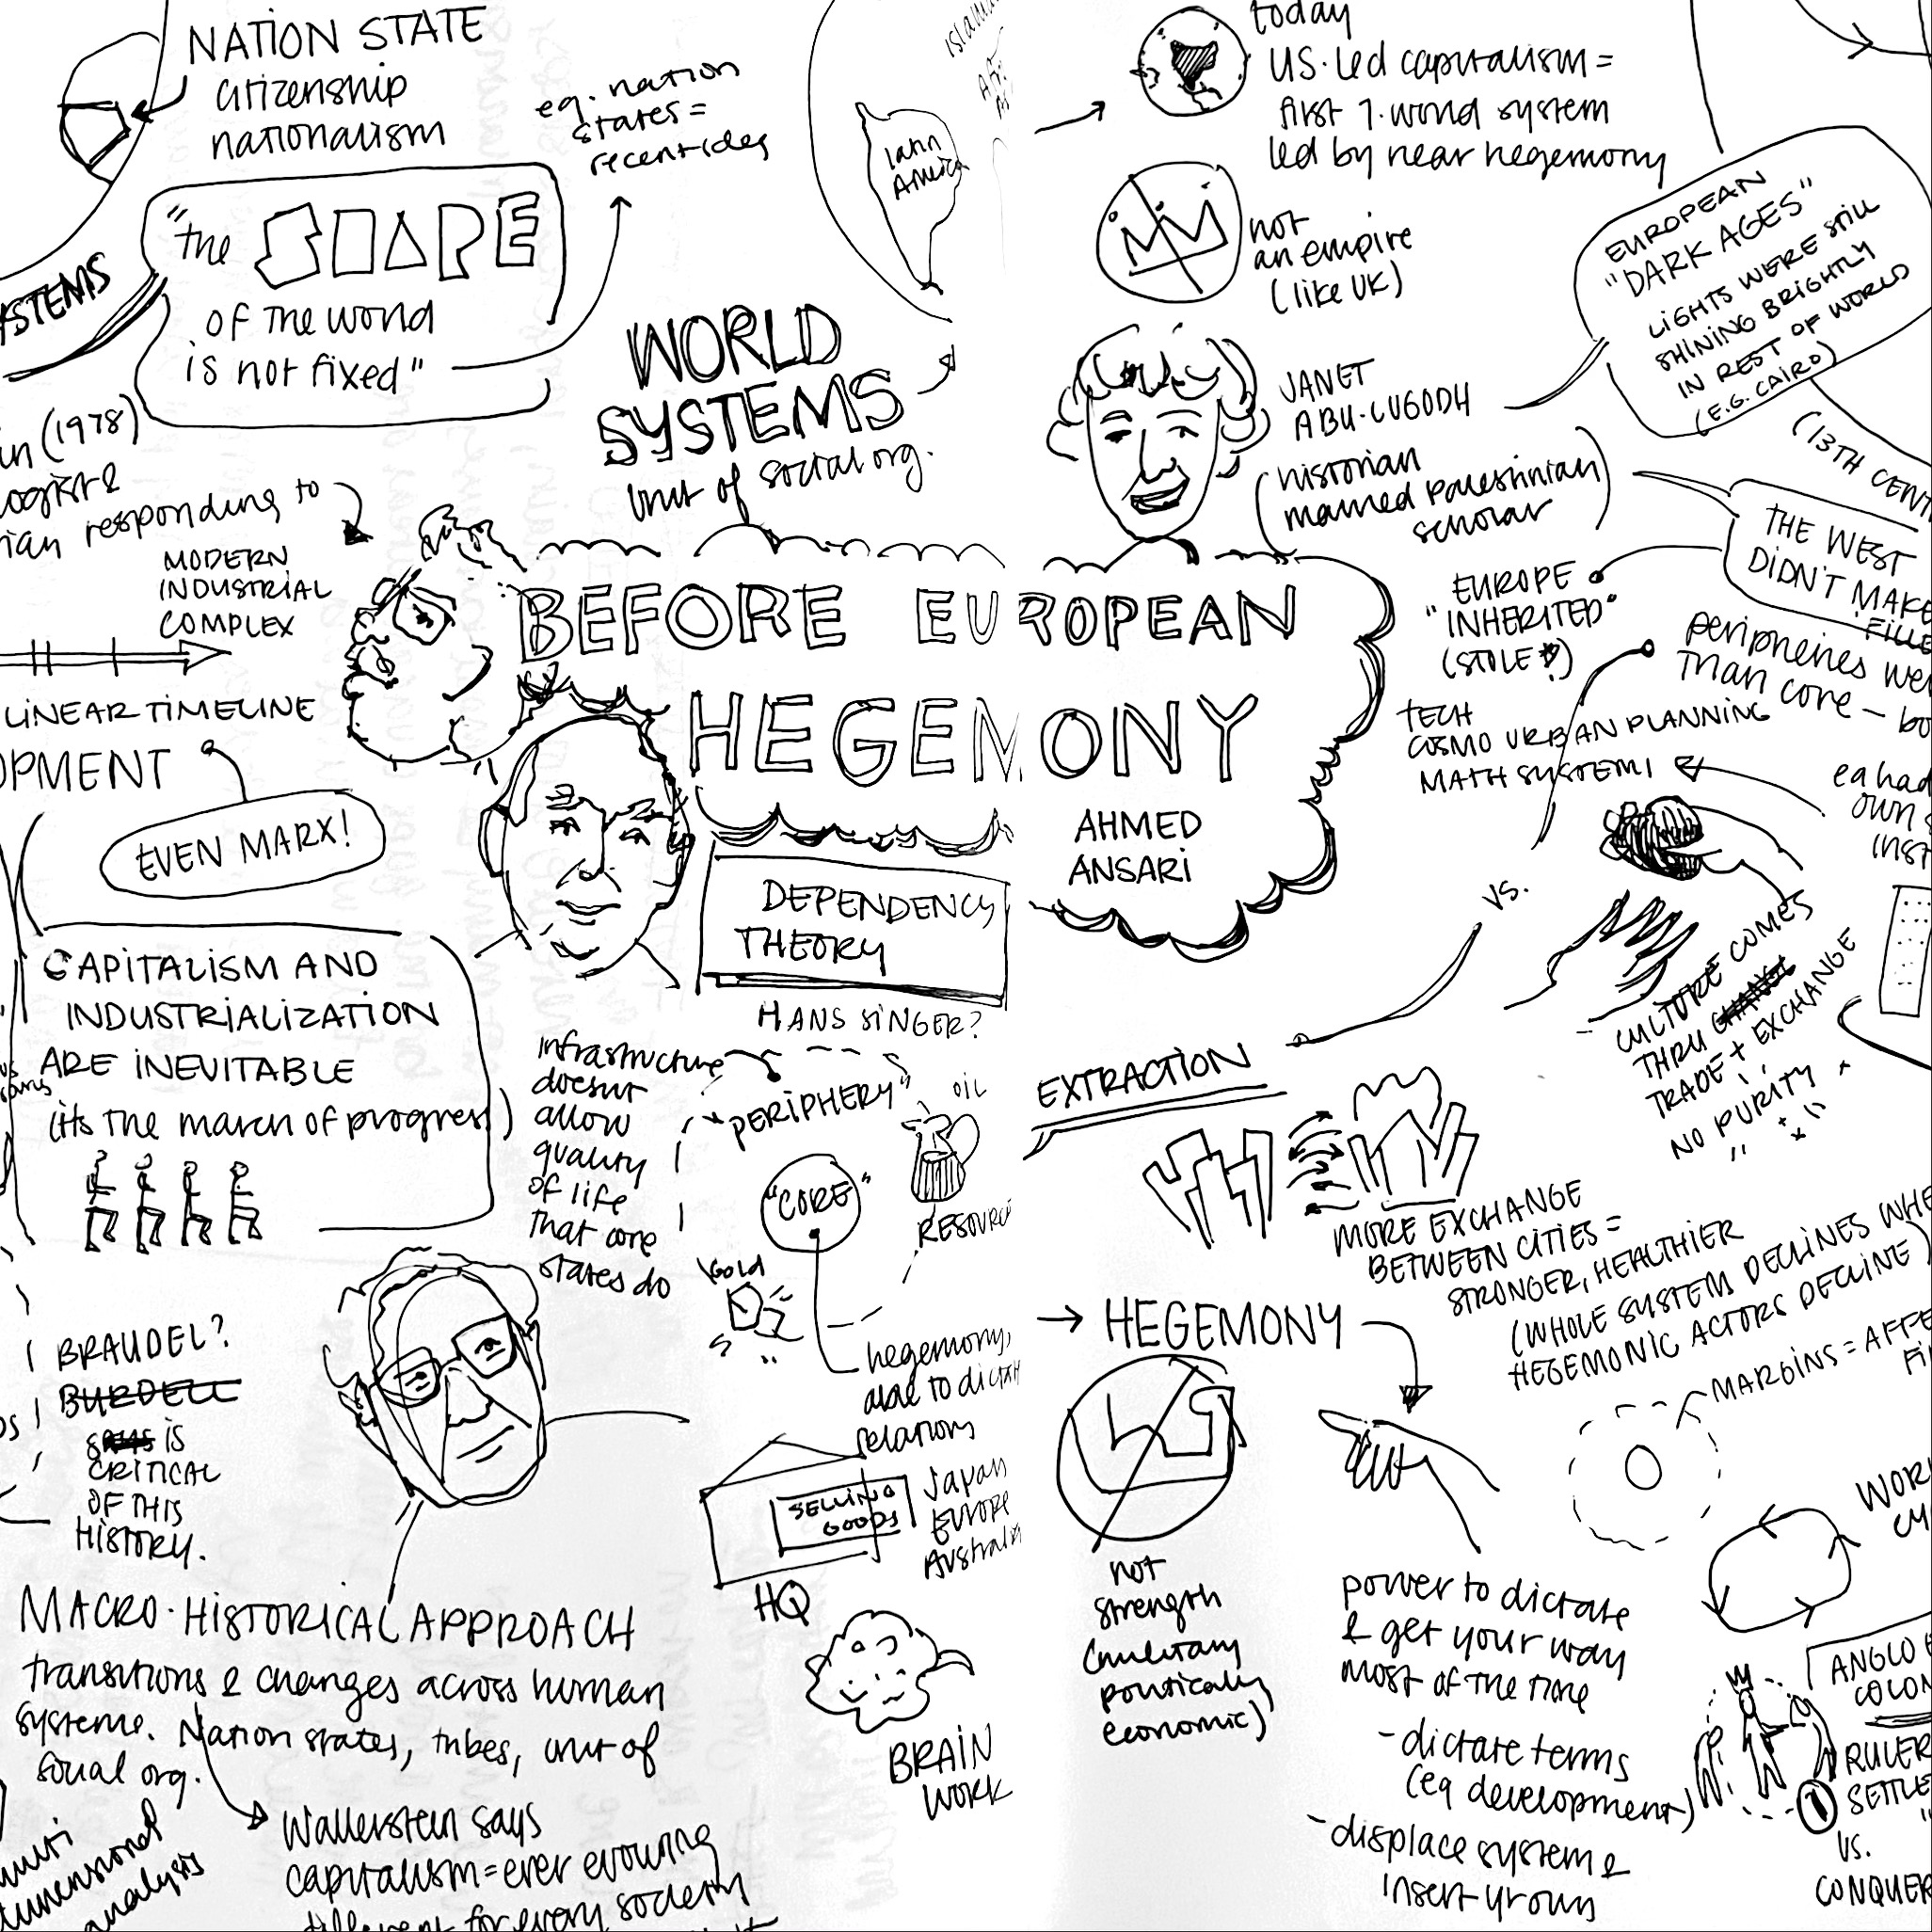 NATION STATE
citizenship
nationalism
"the SHAPE
of the world
is not fixed"
eg. nation
states =
recent idea
YSTEMS
(1978)
responding to
MODERN
INDUSTRIAL
COMPLEX
LINEAR TIMELINE
OPMENT
EVEN MARX!
CAPITALISM AND
INDUSTRIALIZATION
ARE INEVITABLE
(its the march of progress)
BRAUDEL?
BURDELL
IS
CRITICAL
OF THIS
HISTORY.
MACRO-HISTORICAL APPROACH
transitions & changes across human
systems. Nation states, tribes, unit of
social org.
analysis
Wallerstein says
capitalism = ever evolving
different for every society
latin
America
WORLD
SYSTEMS
unit of social org.
BEFORE EUROPEAN
HEGEMONY
AHMED
ANSARI
DEPENDENCY
THEORY
HANS SINGER?
infrastructure
doesnt
allow
quality
of life
that core
states do
"PERIPHERY"
"CORE"
OIL
RESOURC
GOLD
hegemony,
able to dictate
relations
SELLING
GOODS
Japan
Europe
Australia
HQ
BRAIN
WORK
today
US-led capitalism =
first 1-world system
led by near hegemony
not
an empire
(like UK)
JANET
ABU-LUGODH
(historian
married Palestinian
scholar)
EUROPEAN
"DARK AGES"
LIGHTS WERE STILL
SHINING BRIGHTLY
IN REST OF WORLD
(E.G. CAIRO)
(13TH CENT
THE WEST
DIDN'T MAKE
EUROPE
"INHERITED"
(STOLE?)
TECH
COSMO URBAN PLANNING
MATH SYSTEM
peripheries we
than core – bo
ea had
own
inst
VS.
CULTURE COMES
THRU CHANGE
TRADE + EXCHANGE
NO PURITY
EXTRACTION
MORE EXCHANGE
BETWEEN CITIES =
STRONGER, HEALTHIER
(WHOLE SYSTEM DECLINES WHE
HEGEMONIC ACTORS DECLINE)
MARGINS = AFFE
FI
HEGEMONY
not
strength
(military
politically
economic)
power to dictate
& get your way
most of the time
- dictate terms
(eg development)
- displace system &
insert yr own
WOR
CY
ANGLO
COLON
RULER
SETTLE
VS.
CONQUER